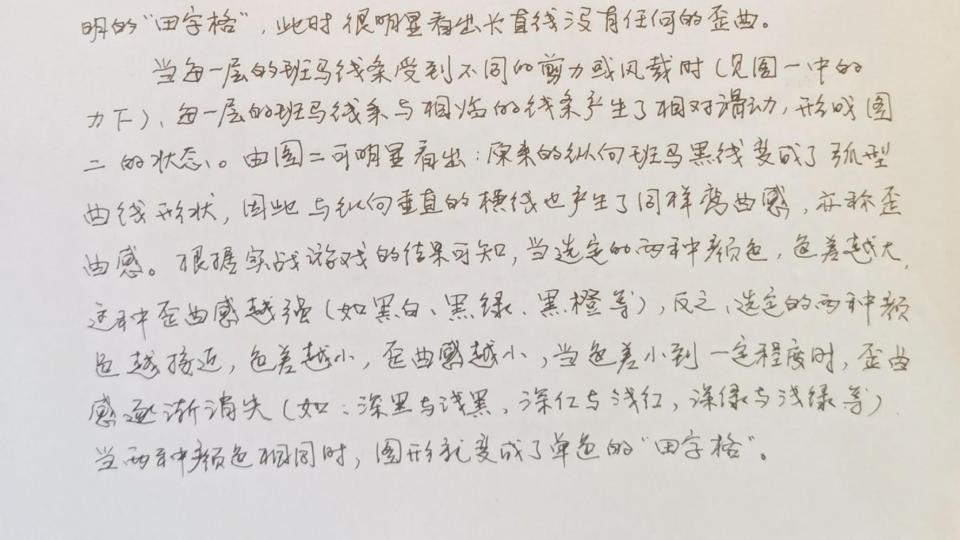 明的“田字格”,此时很明显看出长直线没有任何的歪曲。
当每一层的班马线条受到不同的剪力或风载时(见图一中的
力F)、每一层的班马线条与相临的线条产生了相对滑动,形成图
二的状态。由图二可明显看出:原来的纵向班马黑线变成了弧型
曲线形状,因此与纵向垂直的横线也产生了同样弯曲感,亦称歪
曲感。根据实战游戏的结果可知,当选定的两种颜色,色差越大,
这种歪曲感越强(如黑白、黑绿、黑橙等),反之,选定的两种颜
色越接近,色差越小,歪曲感越小,当色差小到一定程度时,歪曲
感逐渐消失(如:深黑与浅黑,深红与浅红,深绿与浅绿等)
当两种颜色相同时,图形就变成了单色的“田字格”。